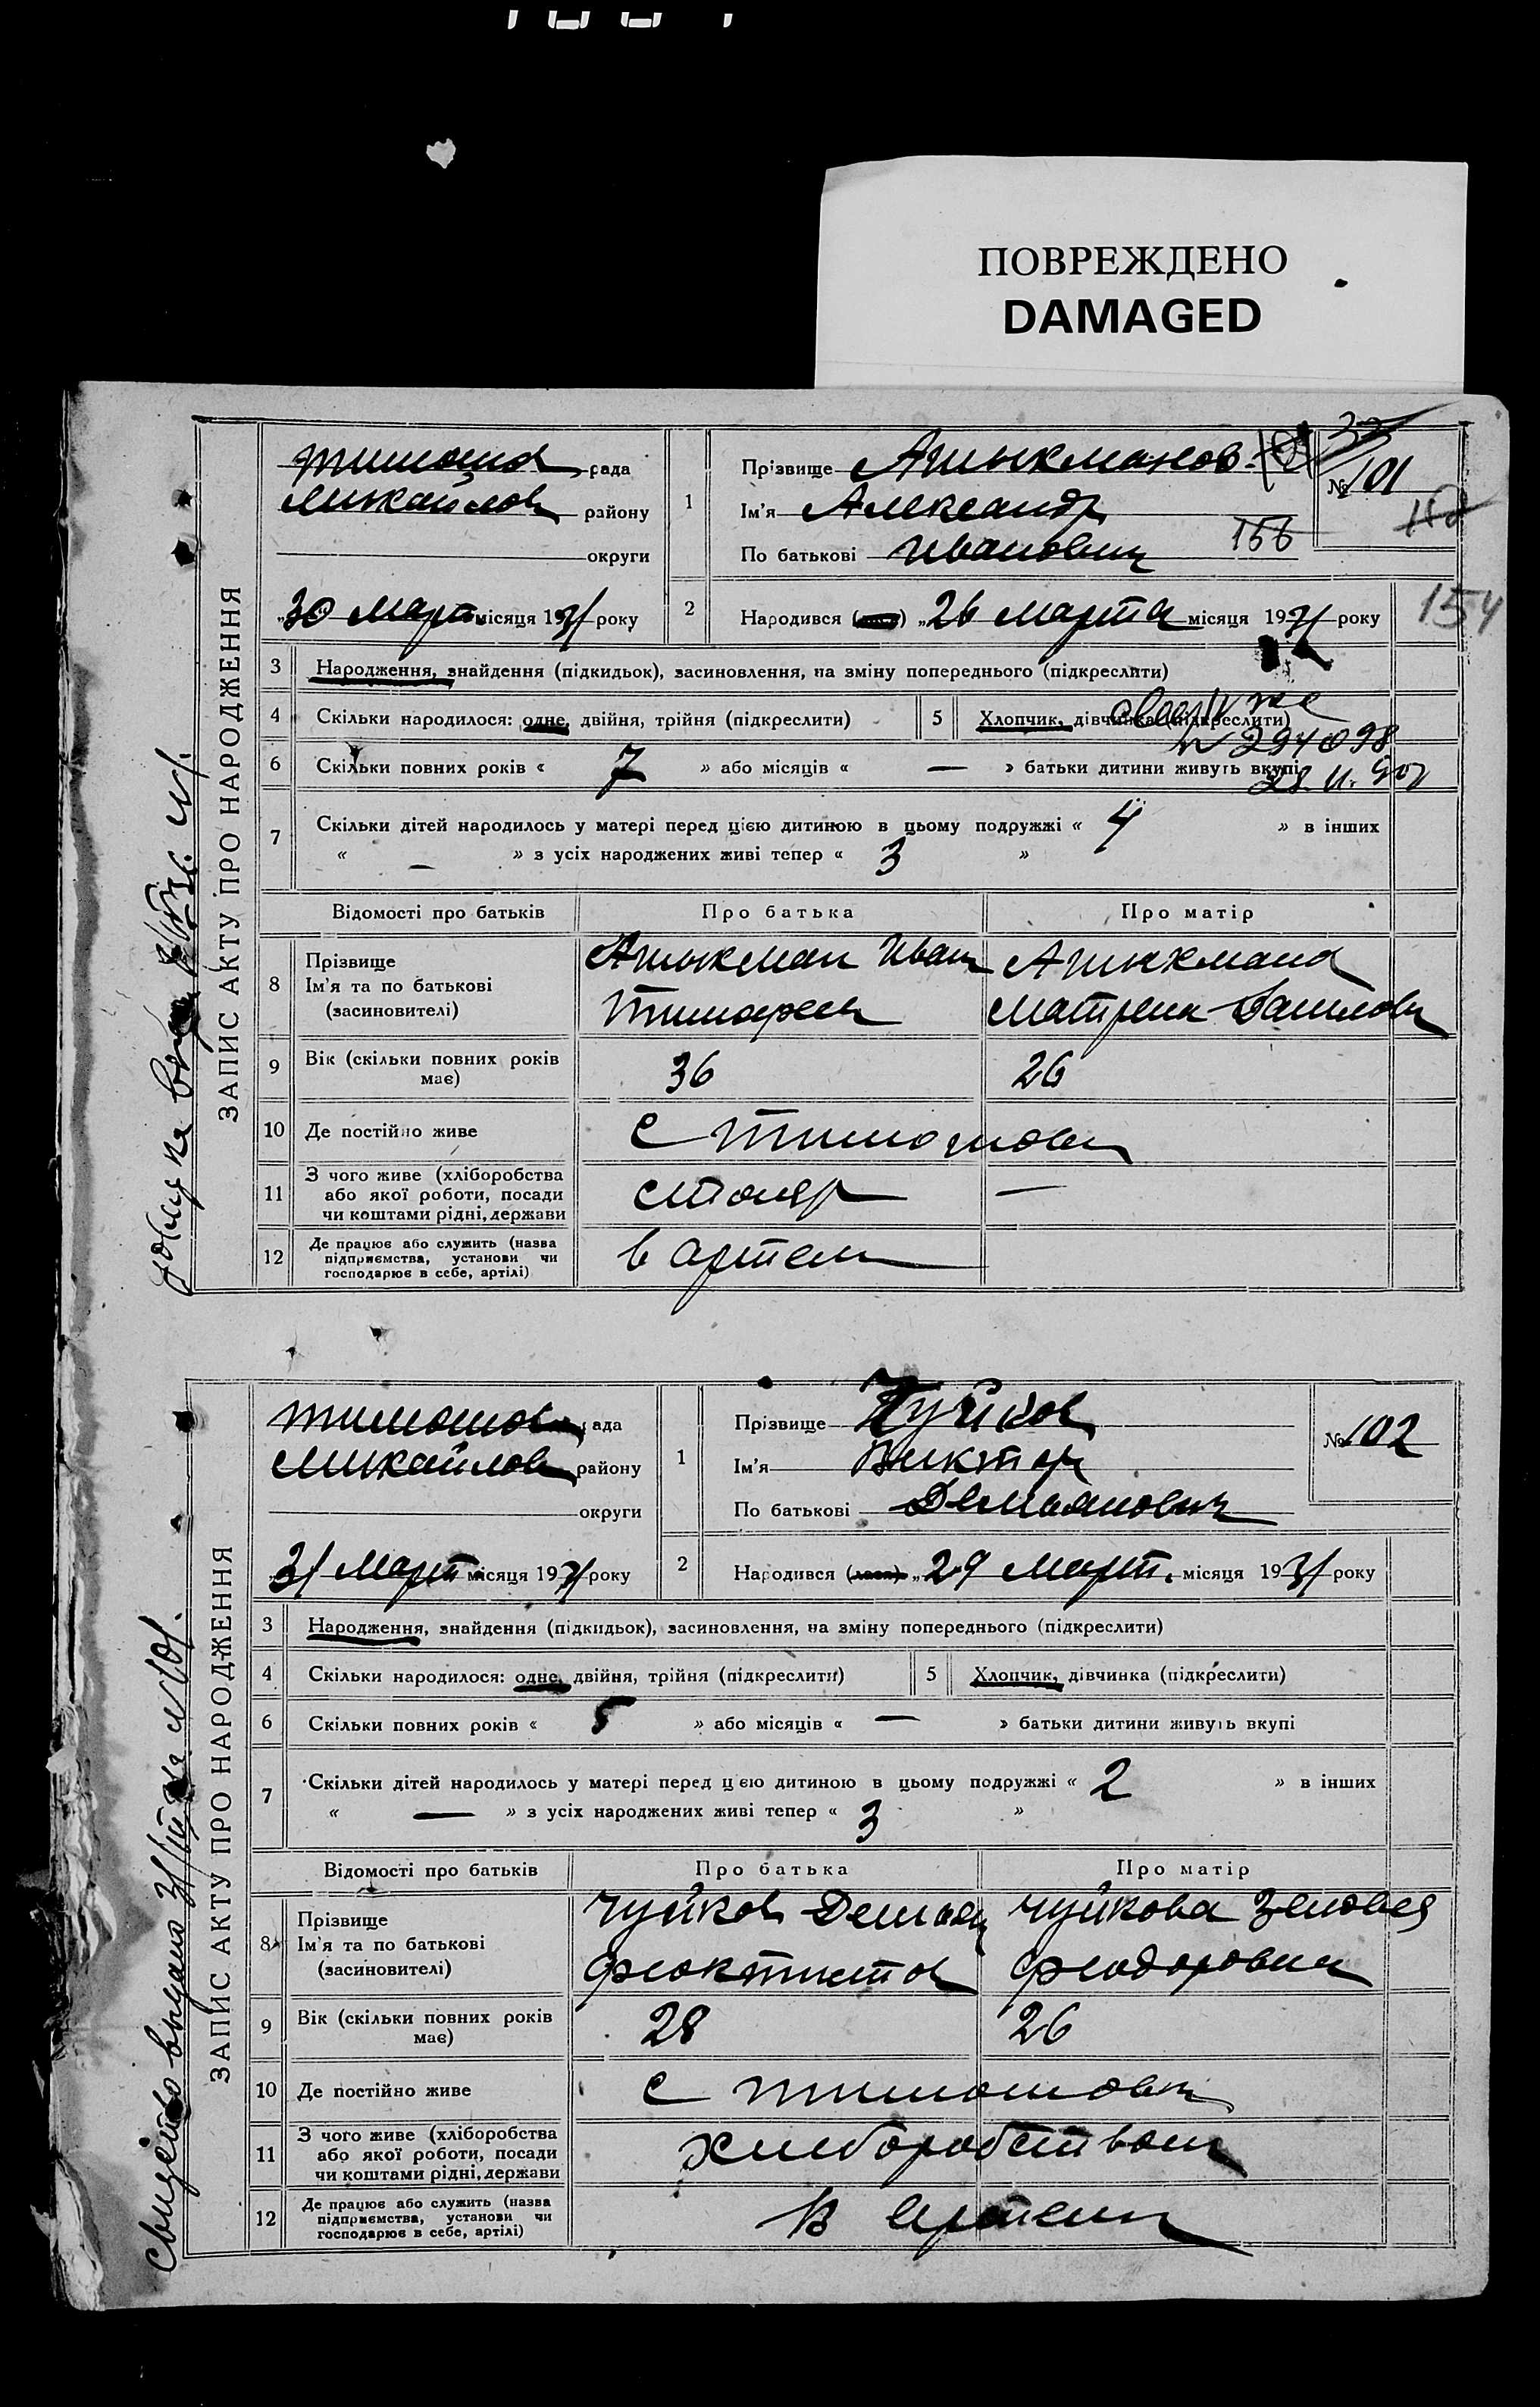 ПОВРЕЖДЕНО
DAMAGED
ЗАПИС АКТУ ПРО НАРОДЖЕННЯ
рада
Михайлов району
округи
„30 Март місяця 1931 року
1
Прізвище
Ім'я Александр
По батькові Иванович
156
33
№ 101
154
2
Народився „26 марта місяця 1931 року
3 Народження, знайдення (підкидьок), засиновлення, на зміну попереднього (підкреслити)
4 Скільки народилося: одне, двійня, трійня (підкреслити)
5 Хлопчик, дівчинка (підкреслити)
№ 294098
6 Скільки повних років « 7 » або місяців « — » батьки дитини живуть вкупі
7 Скільки дітей народилось у матері перед цією дитиною в цьому подружжі « 4 » в інших
« — » з усіх народжених живі тепер « 3 »
Відомості про батьків Про батька Про матір
8 Прізвище
Ім'я та по батькові
(засиновителі)
Иван
Тимофеев
Матрена
9 Вік (скільки повних років має) 36 26
10 Де постійно живе с Тимошовк
11 З чого живе (хліборобства
або якої роботи, посади
чи коштами рідні, держави
столяр —
12 Де працює або служить (назва
підприємства, установи чи
господарює в себе, артілі)
в артели
ЗАПИС АКТУ ПРО НАРОДЖЕННЯ
Свидет-во выдано 31/III за № 101.
Тимошов рада
Михайлов району
округи
31 Март місяця 1931 року
1
Прізвище Чуйков
Ім'я Виктор
По батькові Демьянович
№ 102
2
Народився „29 Март. місяця 1931 року
3 Народження, знайдення (підкидьок), засиновлення, на зміну попереднього (підкреслити)
4 Скільки народилося: одне, двійня, трійня (підкреслити)
5 Хлопчик, дівчинка (підкреслити)
6 Скільки повних років « 5 » або місяців « — » батьки дитини живуть вкупі
7 Скільки дітей народилось у матері перед цією дитиною в цьому подружжі « 2 » в інших
« — » з усіх народжених живі тепер « 3 »
Відомості про батьків Про батька Про матір
8 Прізвище
Ім'я та по батькові
(засиновителі)
Чуйков Демьян
Феоктистов
Чуйкова Зеновея
Феодоровна
9 Вік (скільки повних років має) 28 26
10 Де постійно живе с Тимошовк
11 З чого живе (хліборобства
або якої роботи, посади
чи коштами рідні, держави
Хлиборобством
12 Де працює або служить (назва
підприємства, установи чи
господарює в себе, артілі)
В Артели